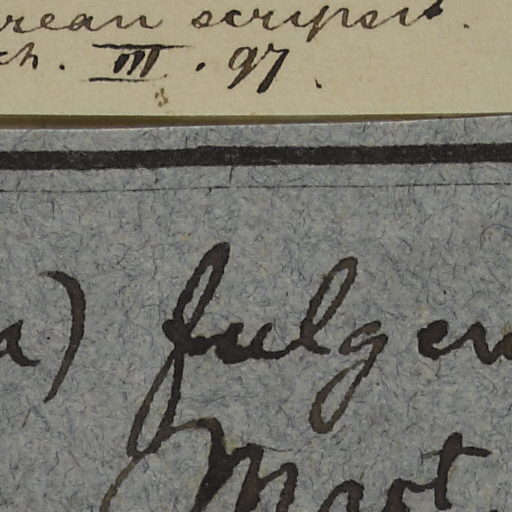 rean scripsit.
ch. III. 97.
a) fulgen
Mart.